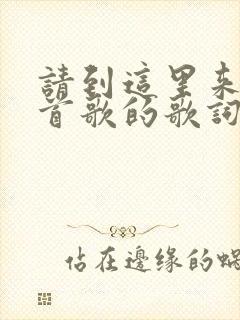 請到這里来
首歌的歌詞
佔在邊缘的蝸